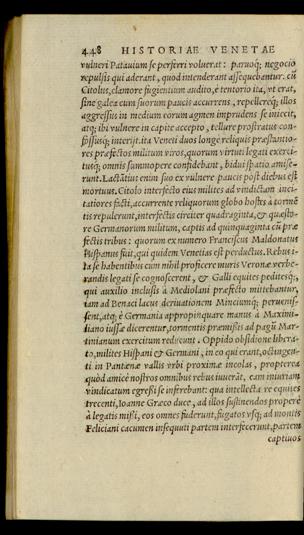 448 HISTORIAE VENETAE
vulneri Patauium se perferri voluerat: paruoq; negocio
repulsis qui aderant, quod intenderant assequebantur. cũ
Citolus, clamore fugientium audito, è tentorio ita, vt erat,
sine galea cum suorum paucis accurrens, repellereq; illos
aggressus in medium eorum agmen imprudens se iniecit,
atq; ibi vulnere in capite accepto, tellure prostratus con-
fossusq; interijt. ita Veneti duos longè reliquis præstantio-
res præfectos militum viros, quorum virtuti legati exerci-
tusq; omnis summopere confidebant, bidui spatio amise-
runt. Lactãtius enim suo ex vulnere paucis pòst diebus est
mortuus. Citolo interfecto eius milites ad vindictam inci-
tatiores facti, accurrente reliquorum globo hostes à tormẽ
tis repulerunt, interfectis circiter quadraginta, & quæsto-
re Germanorum militum, captis ad quinquaginta cũ præ
fectis tribus: quorum ex numero Franciscus Maldonatus
Hispanus fuit, qui quidem Venetias est perductus. Rebus i-
ta se habentibus cum nihil proficere muris Veronæ verbe-
randis legati se cognoscerent, & Galli equites peditesq;,
qui auxilio inclusis à Mediolani præfecto mittebantur,
iam ad Benaci lacus deriuationem Minciumq; peruenis-
sent, atq; è Germania appropinquare manus à Maximi-
liano iussæ dicerentur, tormentis præmissis ad pagũ Mar-
tinianum exercitum reducunt. Oppido obsidione libera-
to, milites Hispani & Germani, in eo qui erant, octingen-
ti in Pantenæ vallis vrbi proximæ incolas, propterea
quòd amicè nostros omnibus rebus iuuerãt, eam iniuriam
vindicatum egressi se inferebant: qua intellecta re equites
trecenti, Ioanne Græco duce, ad illos sustinendos properè
à legatis missi, eos omnes fuderunt, fugatos vsq; ad montis
Feliciani cacumen insequuti partem interfecerunt, partem
captiuos